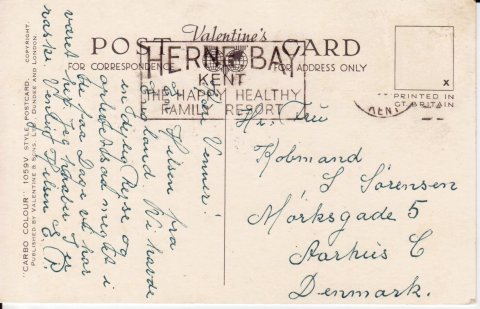 Valentine's
POST CARD
FOR CORRESPONDENCE
FOR ADDRESS ONLY
HERNE BAY
KENT
THE HAPPY HEALTHY
FAMILY RESORT
x
PRINTED IN
GT. BRITAIN
KENT
"CARBO COLOUR" 1059V. STYLE POSTCARD. COPYRIGHT.
PUBLISHED BY VALENTINE & SONS, LTD., DUNDEE AND LONDON.
Kære Venner!
Hilsen fra
England. Vi havde
en dejlig Rejse og
arbejdsad meget i
de faa Dage vi har
været her. Jeg haaber I er
raske. Venlig Hilsen
Hr. Fru
Købmand
S Sørensen
Mörksgade 5
Aarhus C
Denmark.